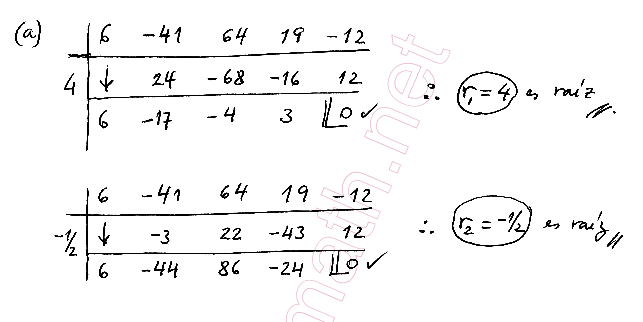 (a) 6 -41 64 19 -12
4 ↓ 24 -68 -16 12 ∴ r₁ = 4 es raíz //.
6 -17 -4 3 0 ✓
6 -41 64 19 -12
-1/2 ↓ -3 22 -43 12 ∴ r₂ = -1/2 es raíz //
6 -44 86 -24 0 ✓
math.net